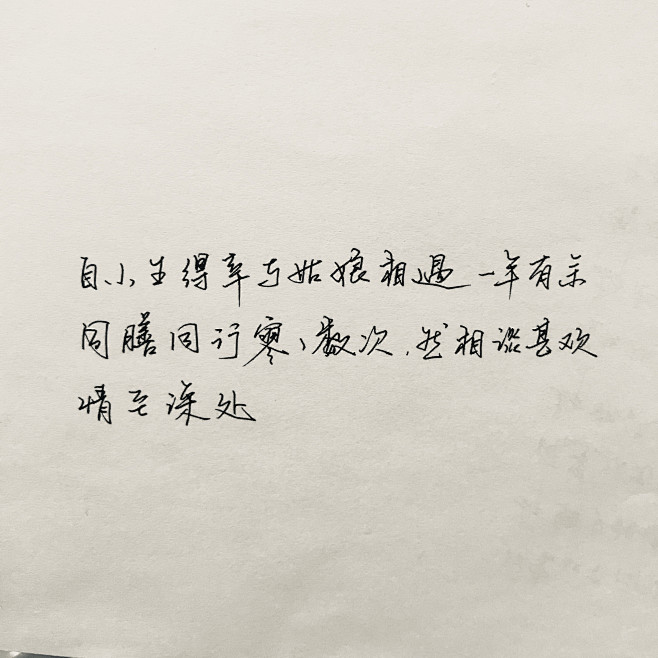 自小生得幸与姑娘相遇一年有余
同膳同行寥、数次,然相谈甚欢
情至深处